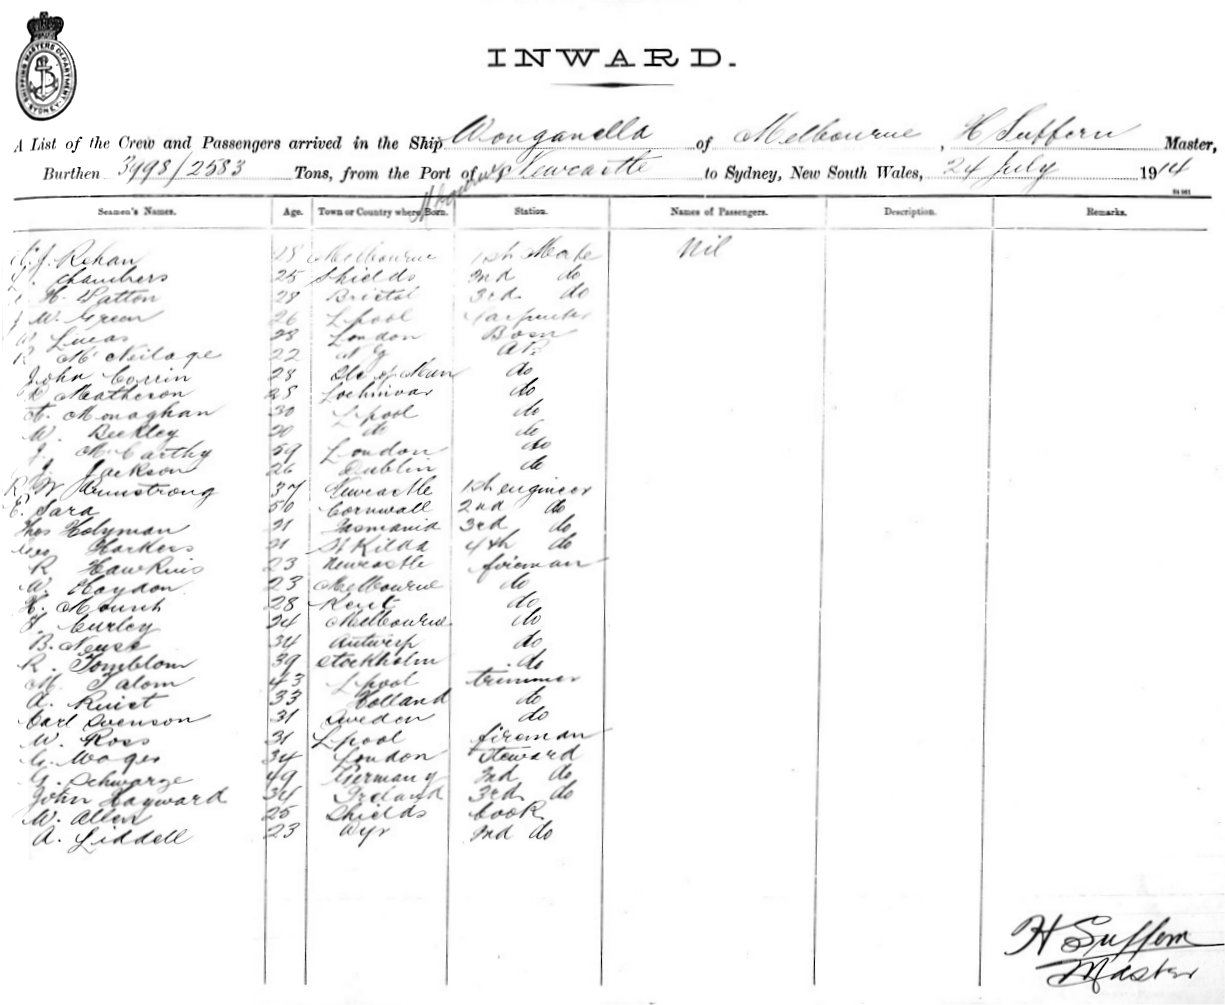 SHIPPING MASTERS DEPARTMENT SYDNEY
INWARD.
A List of the Crew and Passengers arrived in the Ship Wonganella of Melbourne, H Suffern Master,
Burthen 3998/2583 Tons, from the Port of Melbourne & Newcastle to Sydney, New South Wales, 24 July 1914
Seamen's Names. Age. Town or Country where Born. Station. Names of Passengers. Description. Remarks.
J. Rehan 28 Melbourne 1st Mate Nil
Chambers 25 Shields 2nd do
H. Patton 28 Bristol 3rd do
J W. Green 26 L pool Carpenter
Lucas 28 London Bosn
R McNeilage 22 AB
John Corrin 28 Isle of Man do
Matheson 28 Lochinvar do
Monaghan 30 L pool do
W. Beckley 20 do do
J. McCarthy 59 London do
J. Jackson 26 Dublin do
R W Armstrong 37 Newcastle 1st engineer
E. Sara 50 Cornwall 2nd do
Thos Holyman 21 Tasmania 3rd do
Geo Harkers 21 St Kilda 4th do
R Hawkins 23 Newcastle fireman
W. Haydon 23 Melbourne do
H. Mount 28 Kent do
T. Curley 24 Melbourne do
B. Neuse 34 Antwerp do
R. Tomblom 39 Stockholm do
M. Talom 43 L pool trimmer
A. Ruist 33 Holland do
Carl Svenson 31 Sweden do
W. Ross 31 L pool fireman
Woges 34 London Steward
G. Schwarze 49 Germany 2nd do
John Hayward 34 Ireland 3rd do
W. Allen 25 Shields Cook
A. Liddell 23 Ayr 2nd do
H Suffern
Master